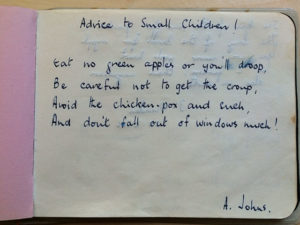 Advice to Small Children!
Eat no green apples or you'll droop,
Be careful not to get the croup,
Avoid the chicken-pox and such,
And don't fall out of windows much!
A. Johns.